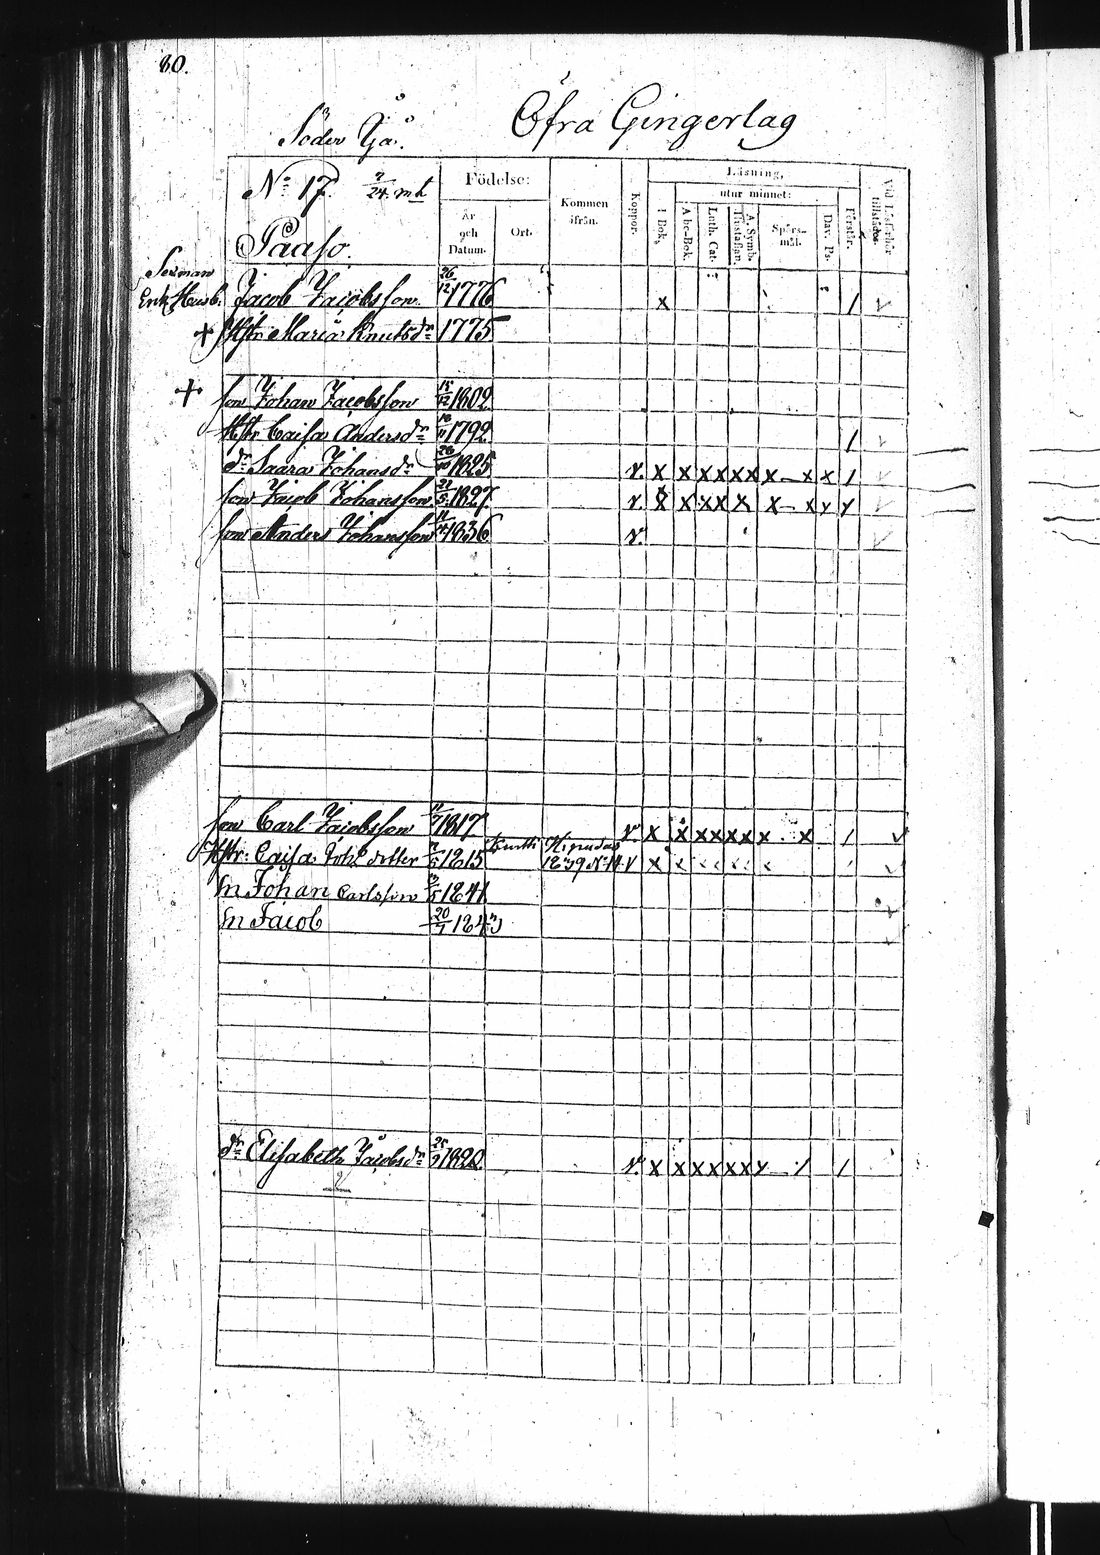 80.
Öfra Gingerlag
Söder Yå.
No 17. 7/24 mtl
Paaso.
Födelse:
År och Datum.
Ort.
Kommen ifrån.
Koppor.
Läsning,
utur minnet:
i Bok.
Abc-Bok.
Luth. Cat.
A. Symb.
Hustaflan.
Spörs-mål.
Dav. Ps.
Förstår.
Vid Läsförhör tillstädes.
Jacob Jacobsson 26/12 1776 x 1
+ Hstr Maria Knutsdr 1775
+ son Johan Jacobsson 15/12 1802
Hstr Caisa Andersdr 1792 1
dr Saara Johansdr 1825 v. x x x x x x x - x x 1
son Jacob Johansson 1827 v. x x x x x x - x y y
son Anders Johansson 1836 v.
son Carl Jacobsson 1817 v. x x x x x x x x 1
Hstr: Caisa Joh: dotter 1815 1839 No 14 v x
Sn Johan Carlsson 1841
Sn Jacob 20/7 1843
dr Elisabeth Jacobsdr 1822 v. x x x x x x y - 1 1